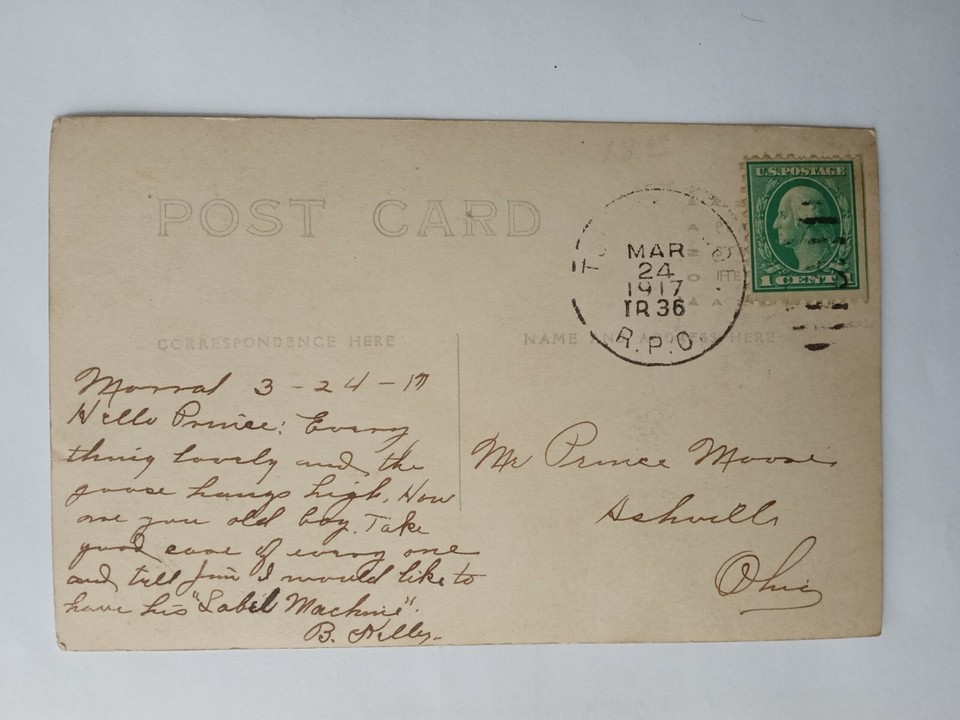 POST CARD
U.S. POSTAGE
1 CENT 1
MAR
24
1917
TR 36
R.P.O
CORRESPONDENCE HERE
NAME AND ADDRESS HERE
Morral 3-24-17
Hello Prince: Every
thing lovely and the
goose hangs high. How
are you old boy. Take
good care of every one
and tell Jim I would like to
have his "Label Machine".
B. Kelley
Mr Prince Moore
Ashville
Ohio